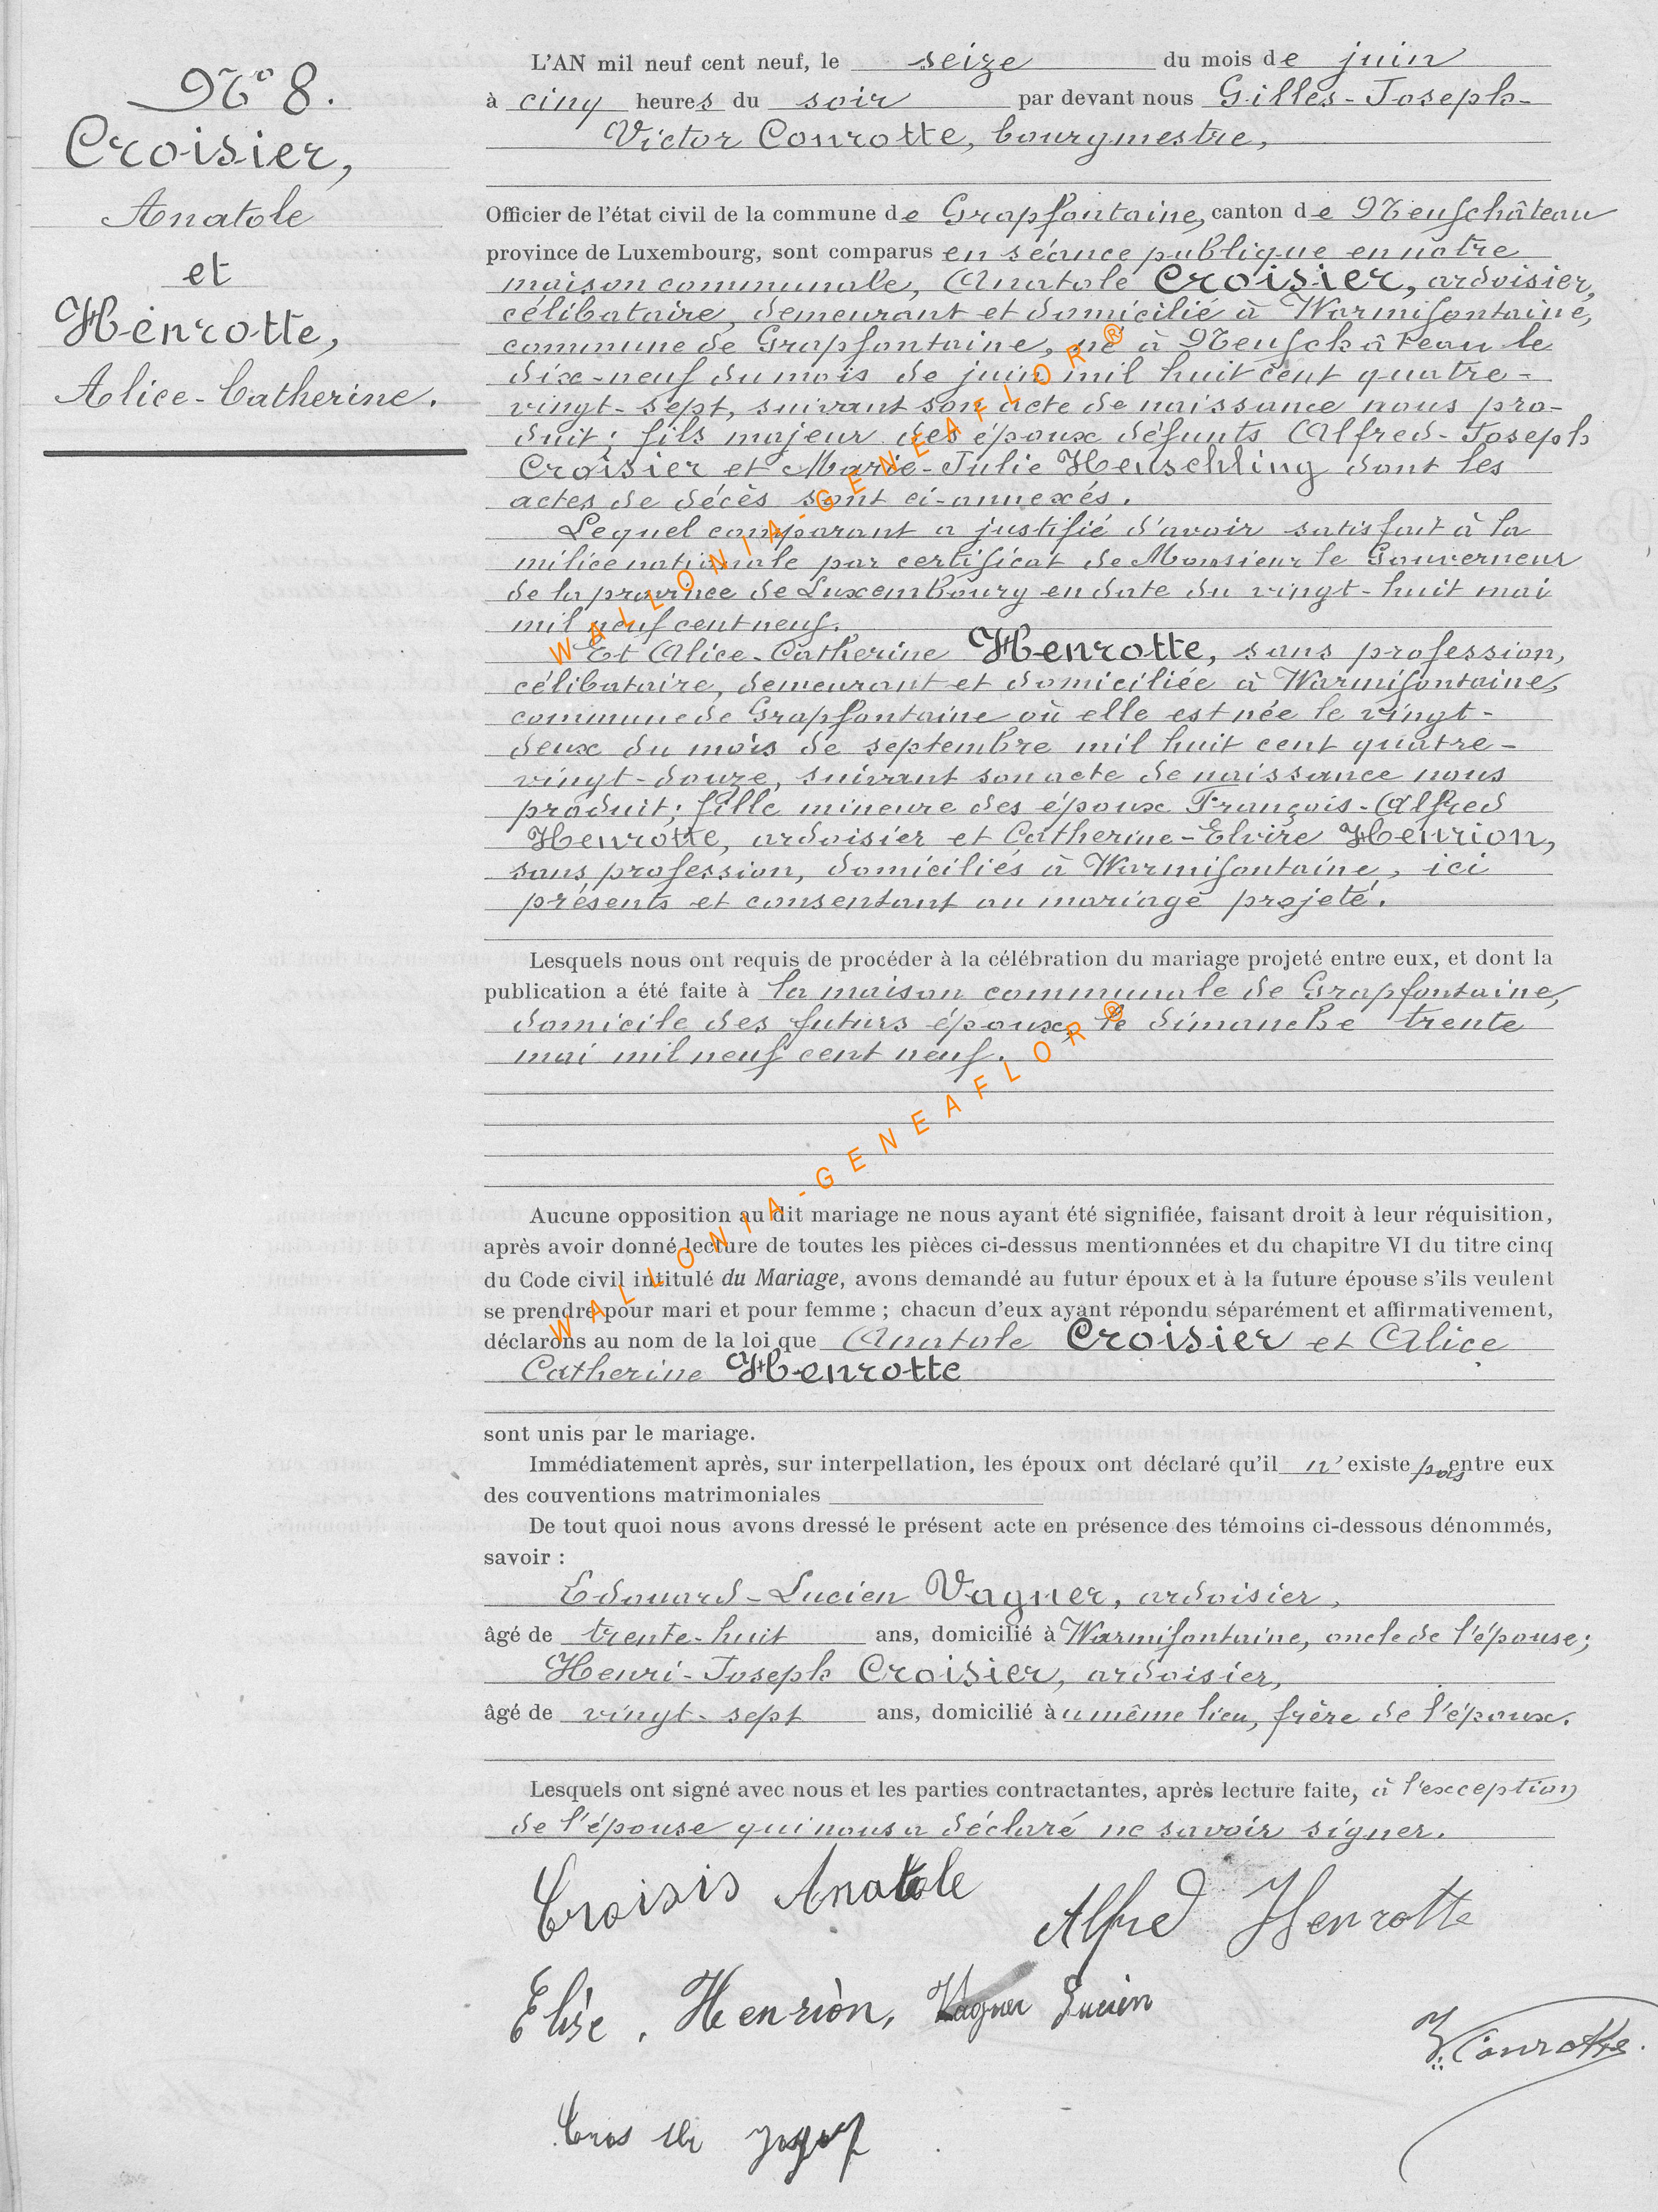 N° 8.
Croisier,
Anatole
et
Henrotte,
Alice-Catherine.
L'AN mil neuf cent neuf, le seize du mois de juin
à cinq heures du soir par devant nous Gilles-Joseph-
Victor Conrotte, bourgmestre,
Officier de l'état civil de la commune de Grapfontaine, canton de Neufchâteau
province de Luxembourg, sont comparus en séance publique en notre
maison communale, Anatole Croisier, ardoisier,
célibataire, demeurant et domicilié à Warmifontaine,
commune de Grapfontaine, né à Neufchâteau le
dix-neuf du mois de juin mil huit cent quatre-
vingt-sept, suivant son acte de naissance nous pro-
duit; fils majeur des époux défunts Alfred-Joseph
Croisier et Marie-Julie Heuschling dont les
actes de décès sont ci-annexés.
Lequel comparant a justifié d'avoir satisfait à la
milice nationale par certificat de Monsieur le Gouverneur
de la province de Luxembourg en date du vingt-huit mai
mil neuf cent neuf.
Et Alice-Catherine Henrotte, sans profession,
célibataire, demeurant et domiciliée à Warmifontaine,
commune de Grapfontaine où elle est née le vingt-
deux du mois de septembre mil huit cent quatre-
vingt-douze, suivant son acte de naissance nous
produit; fille mineure des époux François-Alfred
Henrotte, ardoisier et Catherine-Elvire Henrion,
sans profession, domiciliés à Warmifontaine, ici
présents et consentant au mariage projeté.
Lesquels nous ont requis de procéder à la célébration du mariage projeté entre eux, et dont la
publication a été faite à la maison communale de Grapfontaine,
domicile des futurs époux, le dimanche trente
mai mil neuf cent neuf.
Aucune opposition au dit mariage ne nous ayant été signifiée, faisant droit à leur réquisition,
après avoir donné lecture de toutes les pièces ci-dessus mentionnées et du chapitre VI du titre cinq
du Code civil intitulé du Mariage, avons demandé au futur époux et à la future épouse s'ils veulent
se prendre pour mari et pour femme ; chacun d'eux ayant répondu séparément et affirmativement,
déclarons au nom de la loi que Anatole Croisier et Alice
Catherine Henrotte
sont unis par le mariage.
Immédiatement après, sur interpellation, les époux ont déclaré qu'il n'existe pas entre eux
des couventions matrimoniales
De tout quoi nous avons dressé le présent acte en présence des témoins ci-dessous dénommés,
savoir :
Edouard-Lucien Vagner, ardoisier,
âgé de trente-huit ans, domicilié à Warmifontaine, oncle de l'épouse;
Henri-Joseph Croisier, ardoisier,
âgé de vingt-sept ans, domicilié au même lieu, frère de l'époux.
Lesquels ont signé avec nous et les parties contractantes, après lecture faite, à l'exception
de l'épouse qui nous a déclaré ne savoir signer.
Croisis Anatole
Alfred Henrotte
Elise. Henrion, Vagner Lucien
V. Conrotte.
WALLONIA-GENEAFLOR®
WALLONIA-GENEAFLOR®